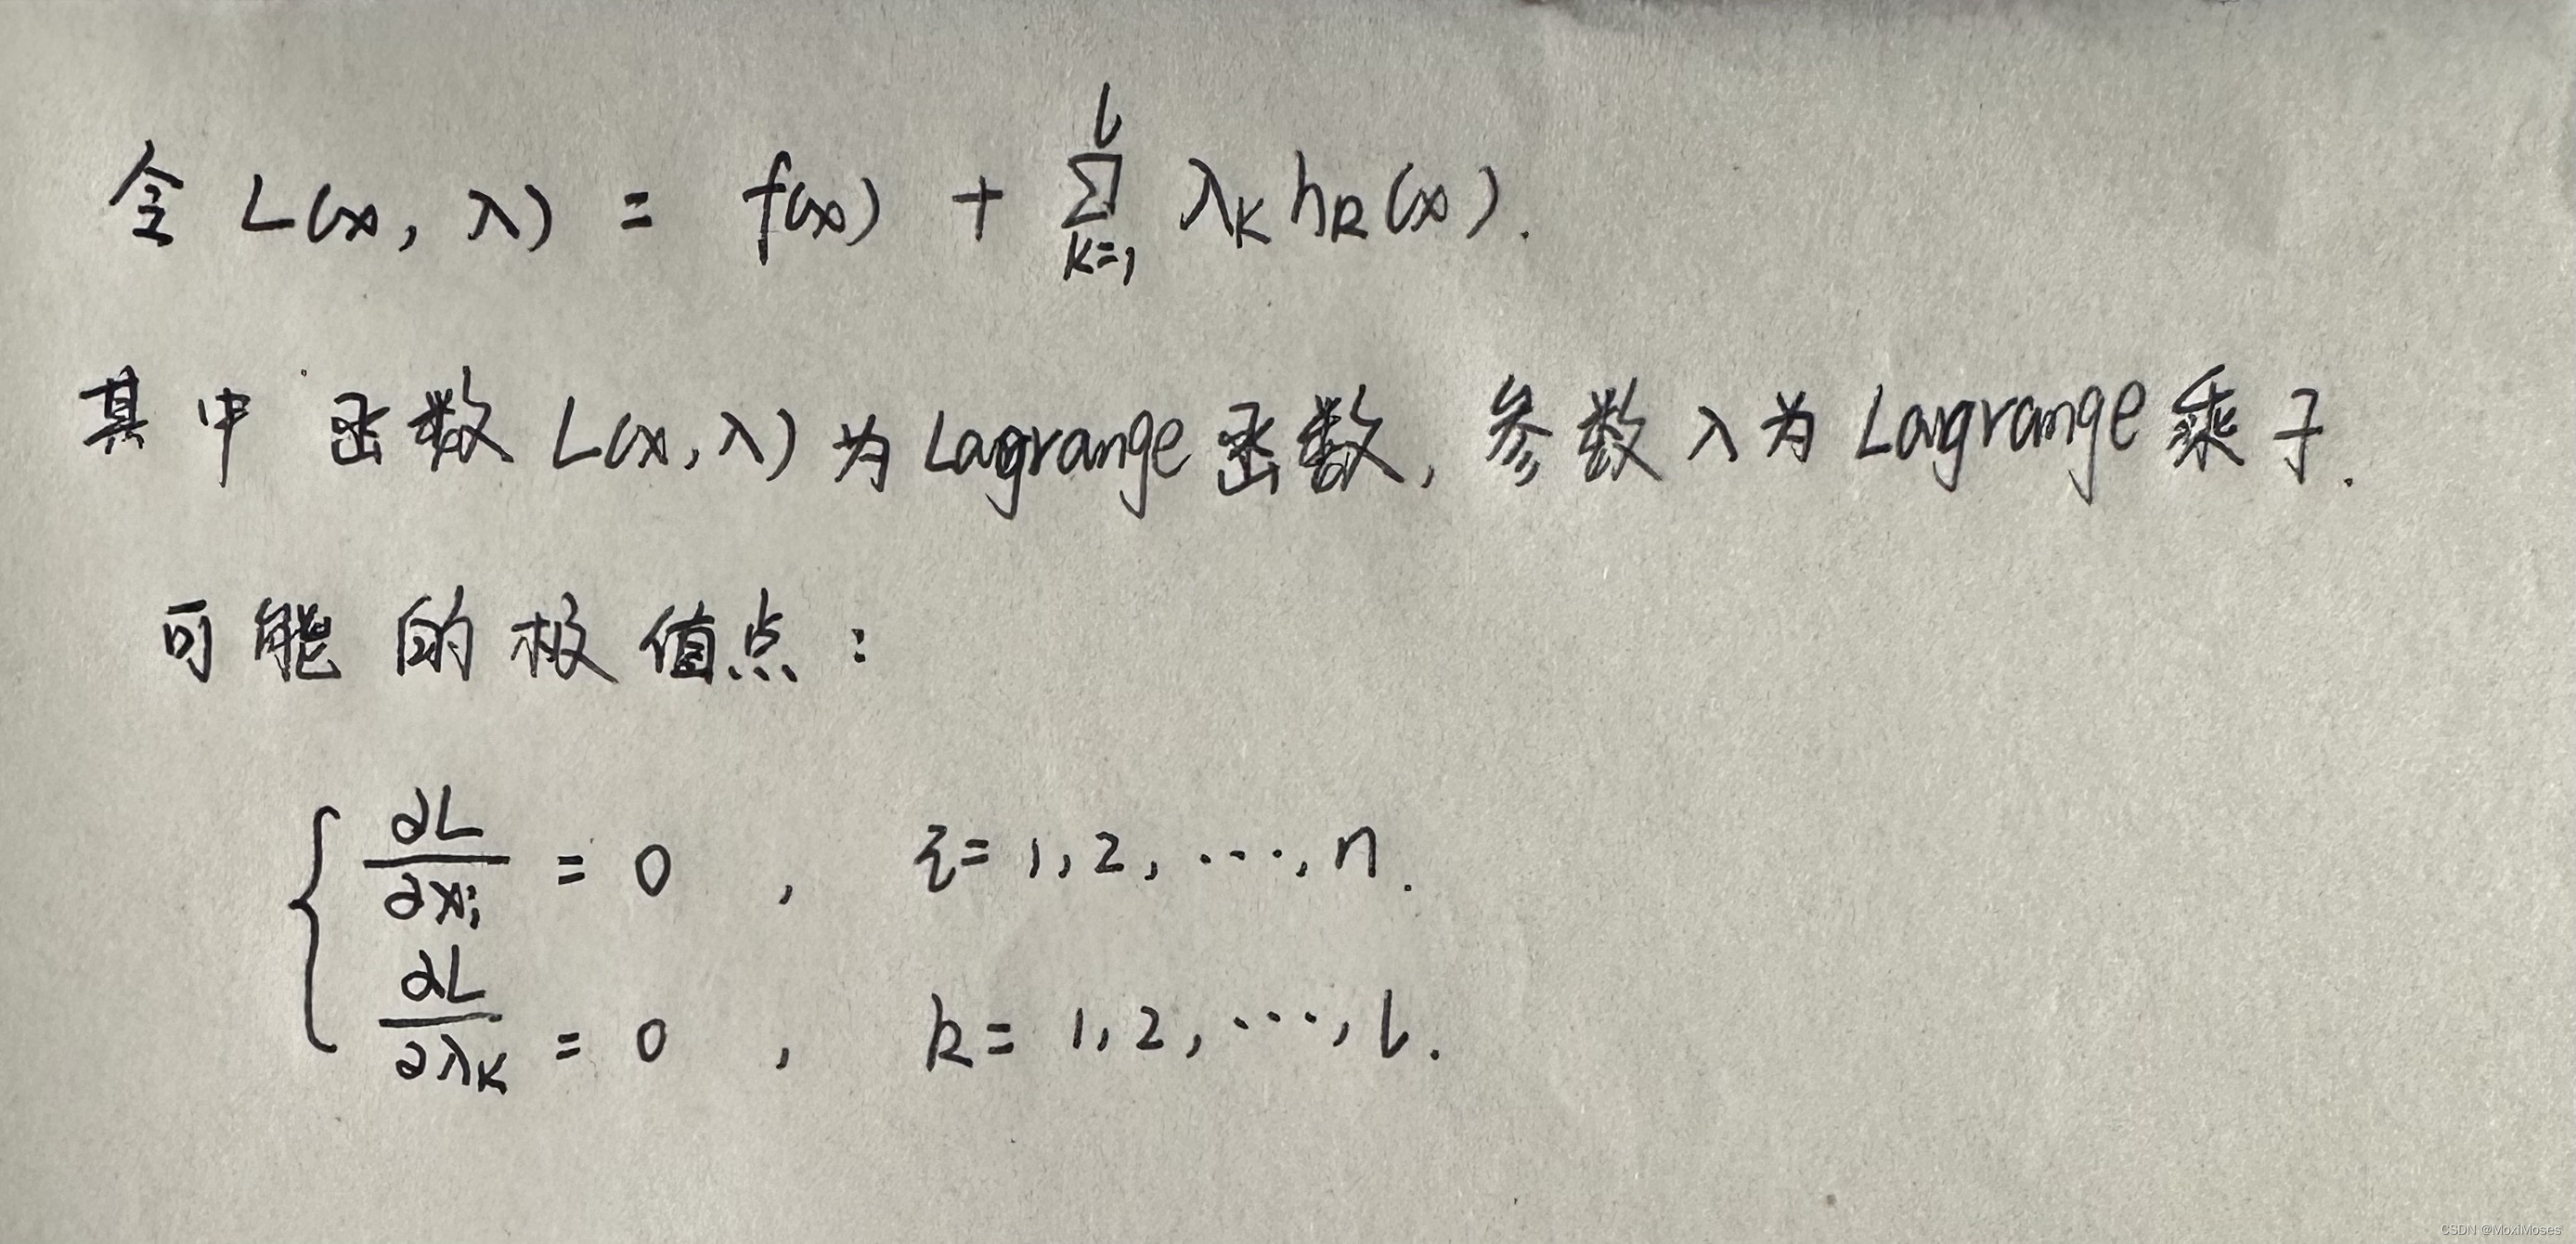 令 L(x, λ) = f(x) + \sum_{k=1}^{l} λ_k h_k(x).
其中函数 L(x, λ) 为 Lagrange 函数, 参数 λ 为 Lagrange 乘子.
可能的极值点:
\frac{∂L}{∂x_i} = 0 , i = 1, 2, ⋯, n.
\frac{∂L}{∂λ_k} = 0 , k = 1, 2, ⋯, l.
CSDN @MoxiMoses